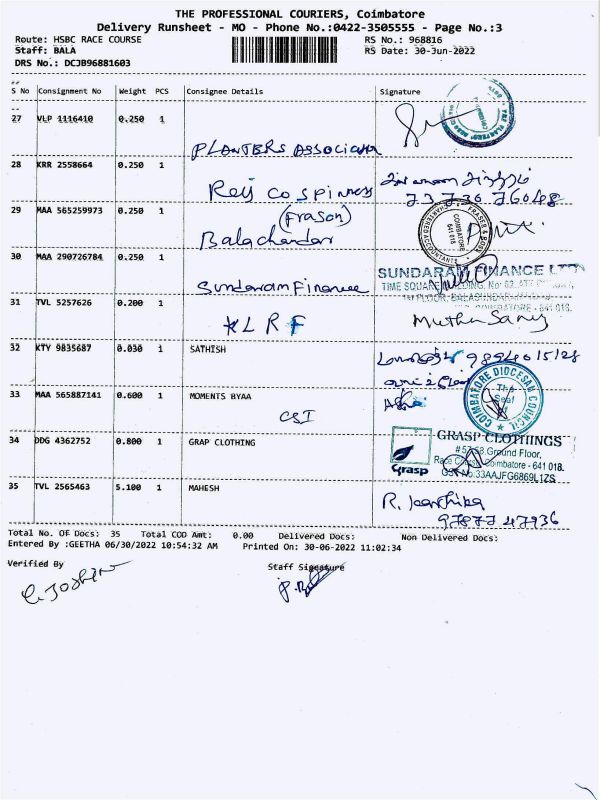 THE PROFESSIONAL COURIERS, Coimbatore
Delivery Runsheet - MO - Phone No.:0422-3505555 - Page No.:3
Route: HSBC RACE COURSE RS No.: 968816
Staff: BALA RS Date: 30-Jun-2022
DRS No.: DCJB96881603
S No Consignment No Weight PCS Consignee Details Signature
27 VLP 1116410 0.250 1
PLANTERS ASSOCIATION
28 KRR 2558664 0.250 1
Rei Co Spinners
73730 76048
29 MAA 565259973 0.250 1
(Frason)
Balachandar
FRASER & ROSS
CHARTERED ACCOUNTANTS
COIMBATORE
641 018
30 MAA 290726784 0.250 1
Sundaram Finance
SUNDARAM FINANCE LTD
31 TVL 5257626 0.200 1
KLRF
Muthu Samy
32 KTY 9835687 0.030 1 SATHISH
9894015128
33 MAA 565887141 0.600 1 MOMENTS BYAA
CSI
COIMBATORE DIOCESAN COUNCIL
The Seal of
34 DDG 4362752 0.800 1 GRAP CLOTHING
Grasp
GRASP CLOTHINGS
# 57,58, Ground Floor,
Race Course, Coimbatore - 641 018.
GST No:33AAJFG6869L1ZS
35 TVL 2565463 5.100 1 MAHESH
R. Karthika
97877 47936
Total No. Of Docs: 35 Total COD Amt: 0.00 Delivered Docs: Non Delivered Docs:
Entered By :GEETHA 06/30/2022 10:54:32 AM Printed On: 30-06-2022 11:02:34
Verified By Staff Signature